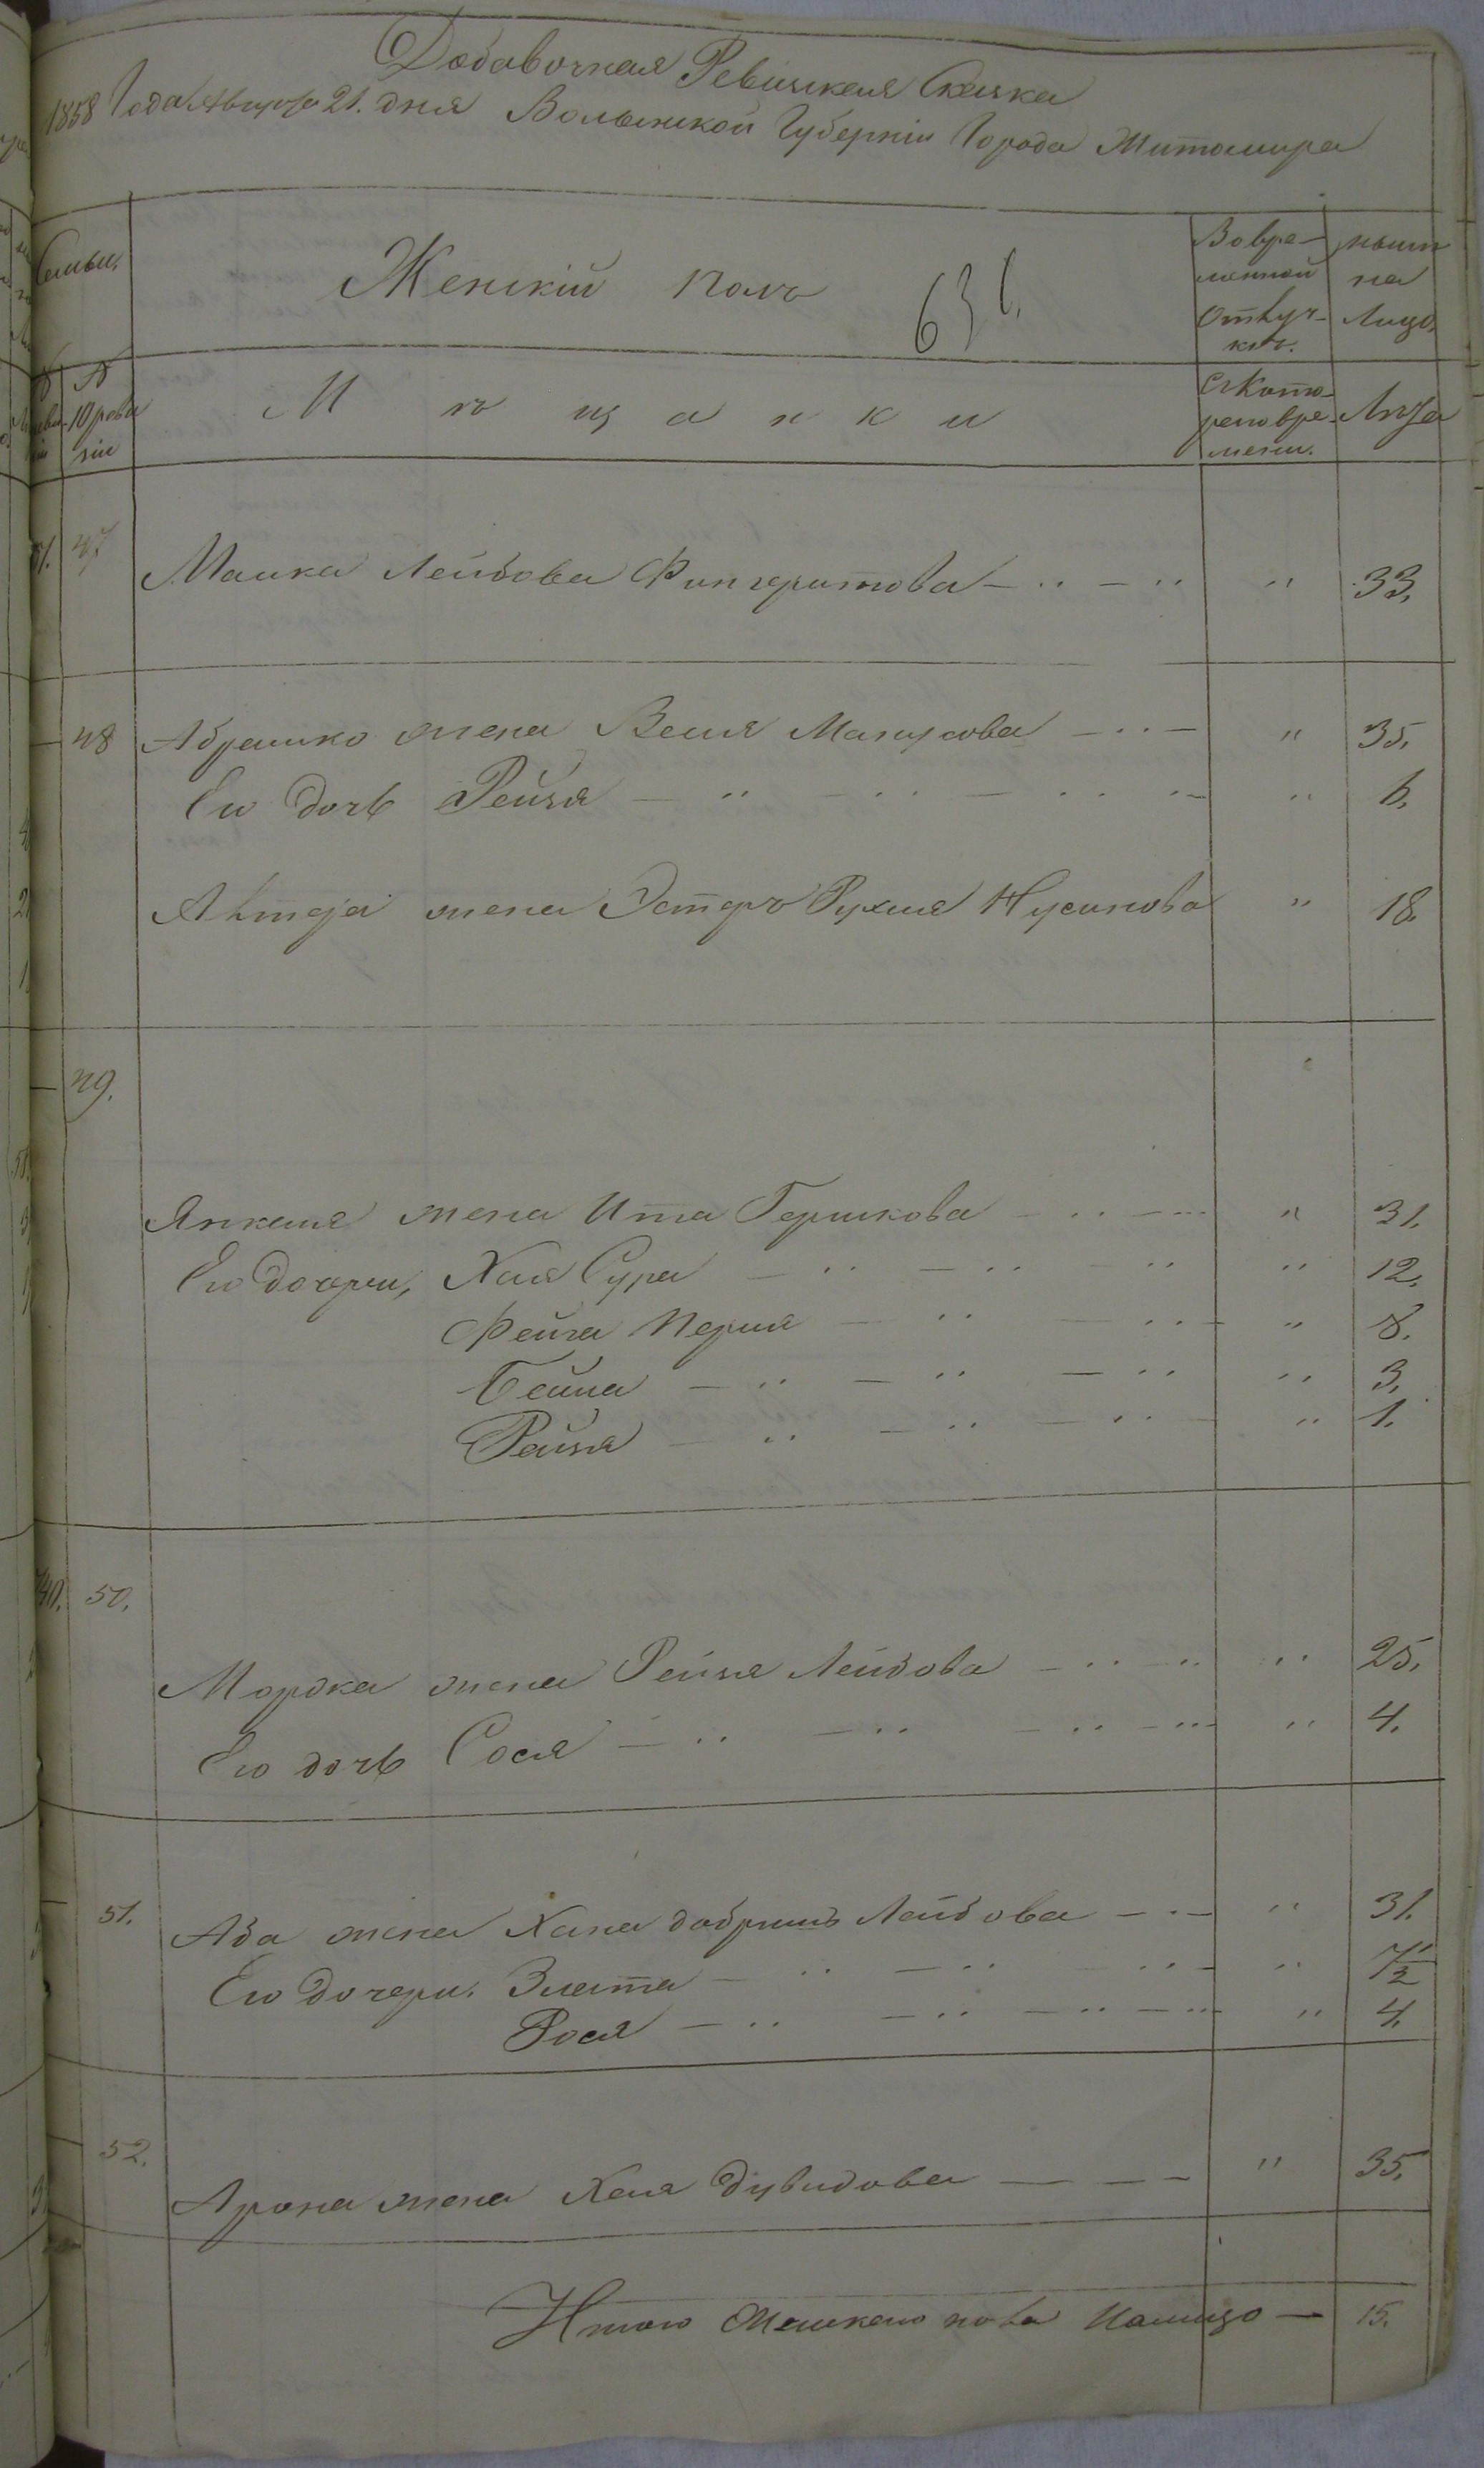 Добавочная Ревизская Сказка
1858 Года Августа 21. дня Волынской Губерніи Города Житомира
Семьи,
Женскій полъ
631.
Во вре-
менной
отлуч-
кѣ.
ныни
на
Лицо,
№
№
10 реви
зіи
М ѣ щ а н к и
Съ кото-
раго вре-
мени.
Лѣта
47
Малка Лейбова Фингерутова - " - " " 33,
48 Абрамко жена Веля Манусова - " - " 35,
Его дочь Рейзя - " - " - " " " 6,
жена Эстеръ Рухля Нусинова " 18,
49.
Янкеля жена Ита Гершкова - " - " " 31,
Его дочери, Хая Сура - " - " - " " 12,
Фейга Перля - " - " - " 8.
Бейла - " - " - " " 3,
Рейзя - " - " - " - " 1.
50.
Мордка жена Рейзя Лейбова - " - " " 25,
Его дочь Сося - " - " - " - " " 4.
51. Аба жена Хана Добришъ Лейбова - " - " 31.
Его Дочери. Злата - " - " - " - " 7½
Рося - " - " - " - " " 4.
52.
Арона жена Хая Дувидова - - - " 35,
Итого Женскаго пола Налицо - 15.